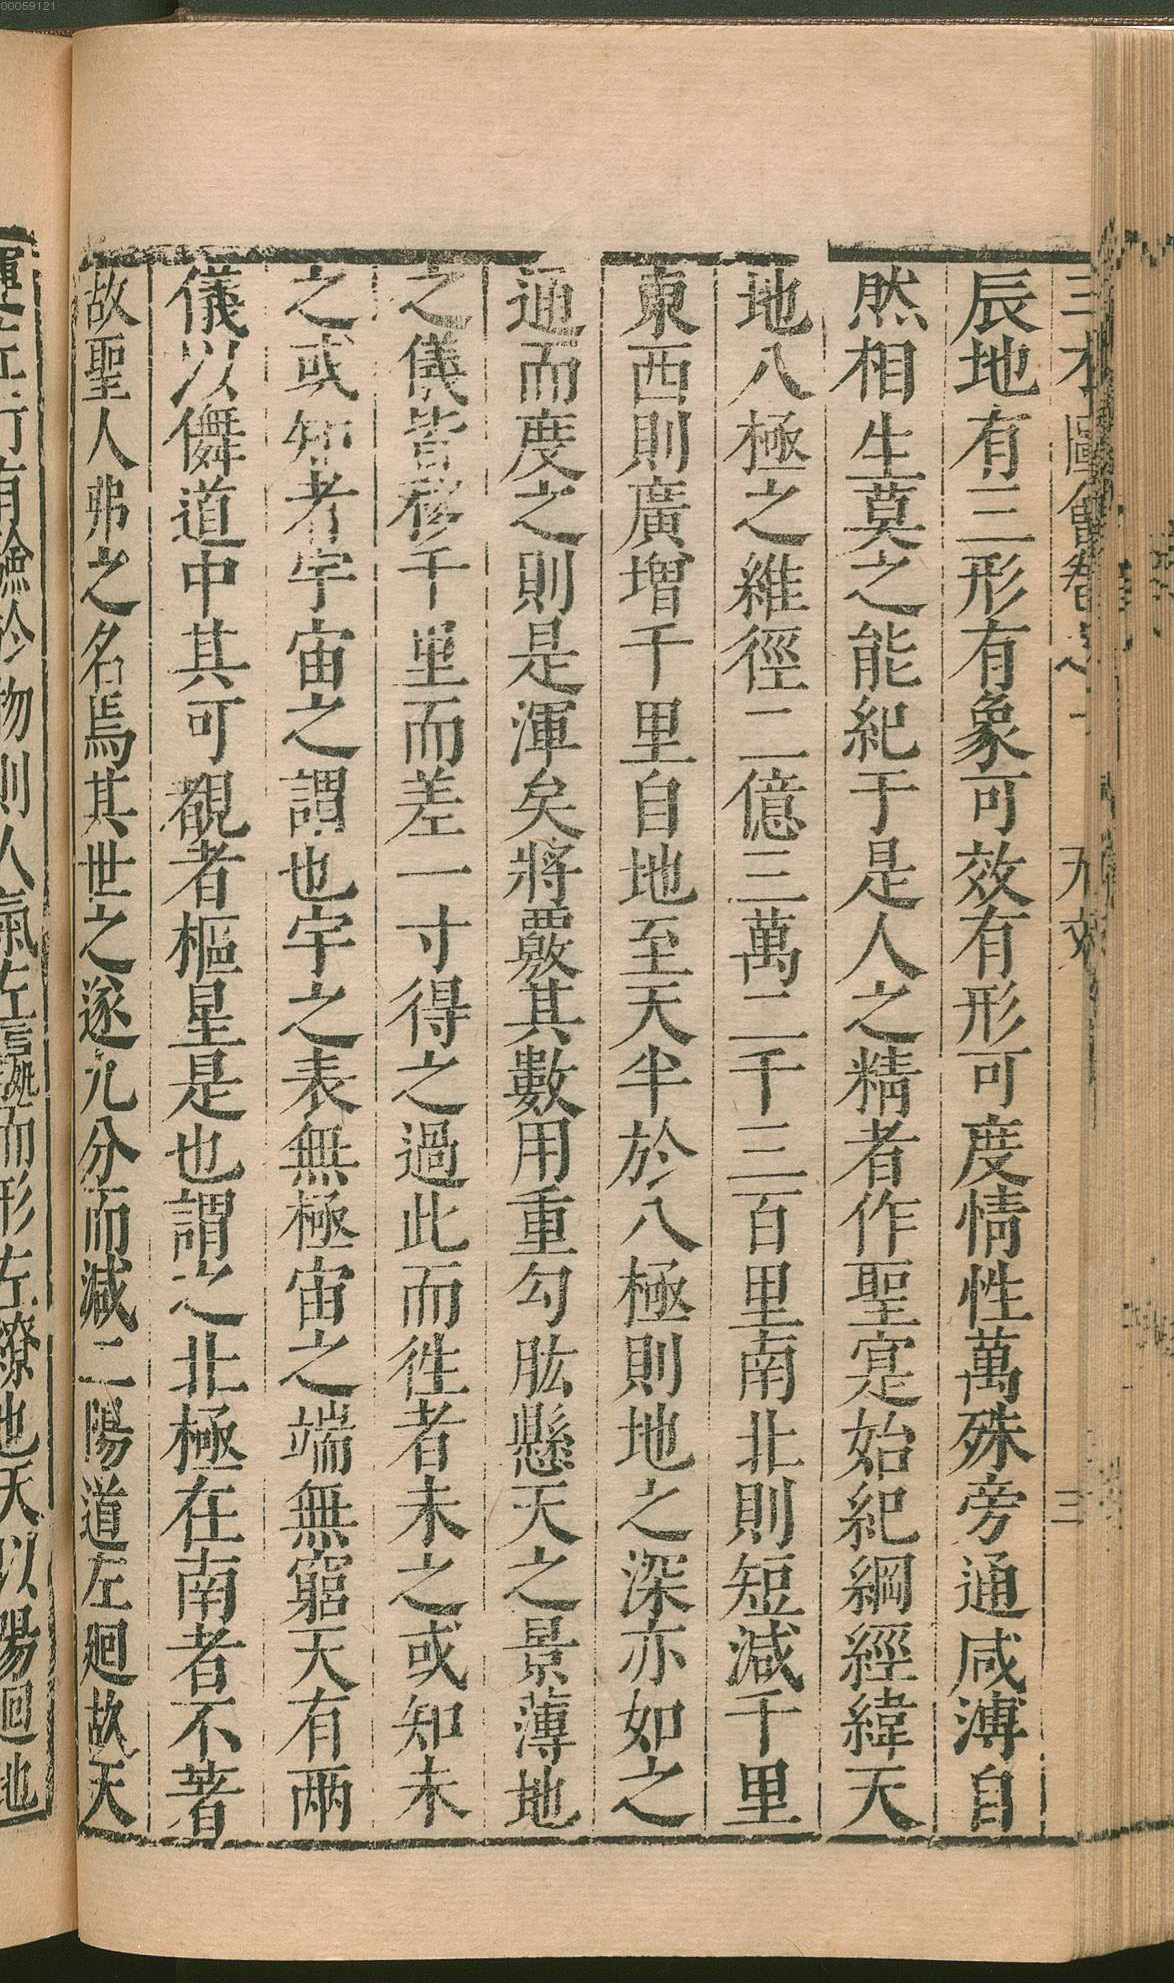 00059121
三才圖會卷之一 天文 三
辰地有三形有象可效有形可度情性萬殊旁通咸溥自
然相生莫之能紀于是人之精者作聖寔始紀綱經緯天
地八極之維徑二億三萬二千三百里南北則短減千里
東西則廣增千里自地至天半於八極則地之深亦如之
通而度之則是渾矣將覈其數用重勾肱懸天之景薄地
之儀皆移千里而差一寸得之過此而徃者未之或知未
之或知者宇宙之謂也宇之表無極宙之端無窮天有兩
儀以儛道中其可覩者樞星是也謂之北極在南者不著
故聖人弗之名焉其世之遂九分而減二陽道左廻故天
運左行有驗於物則人氣左羸形左繚也天以陽廻地